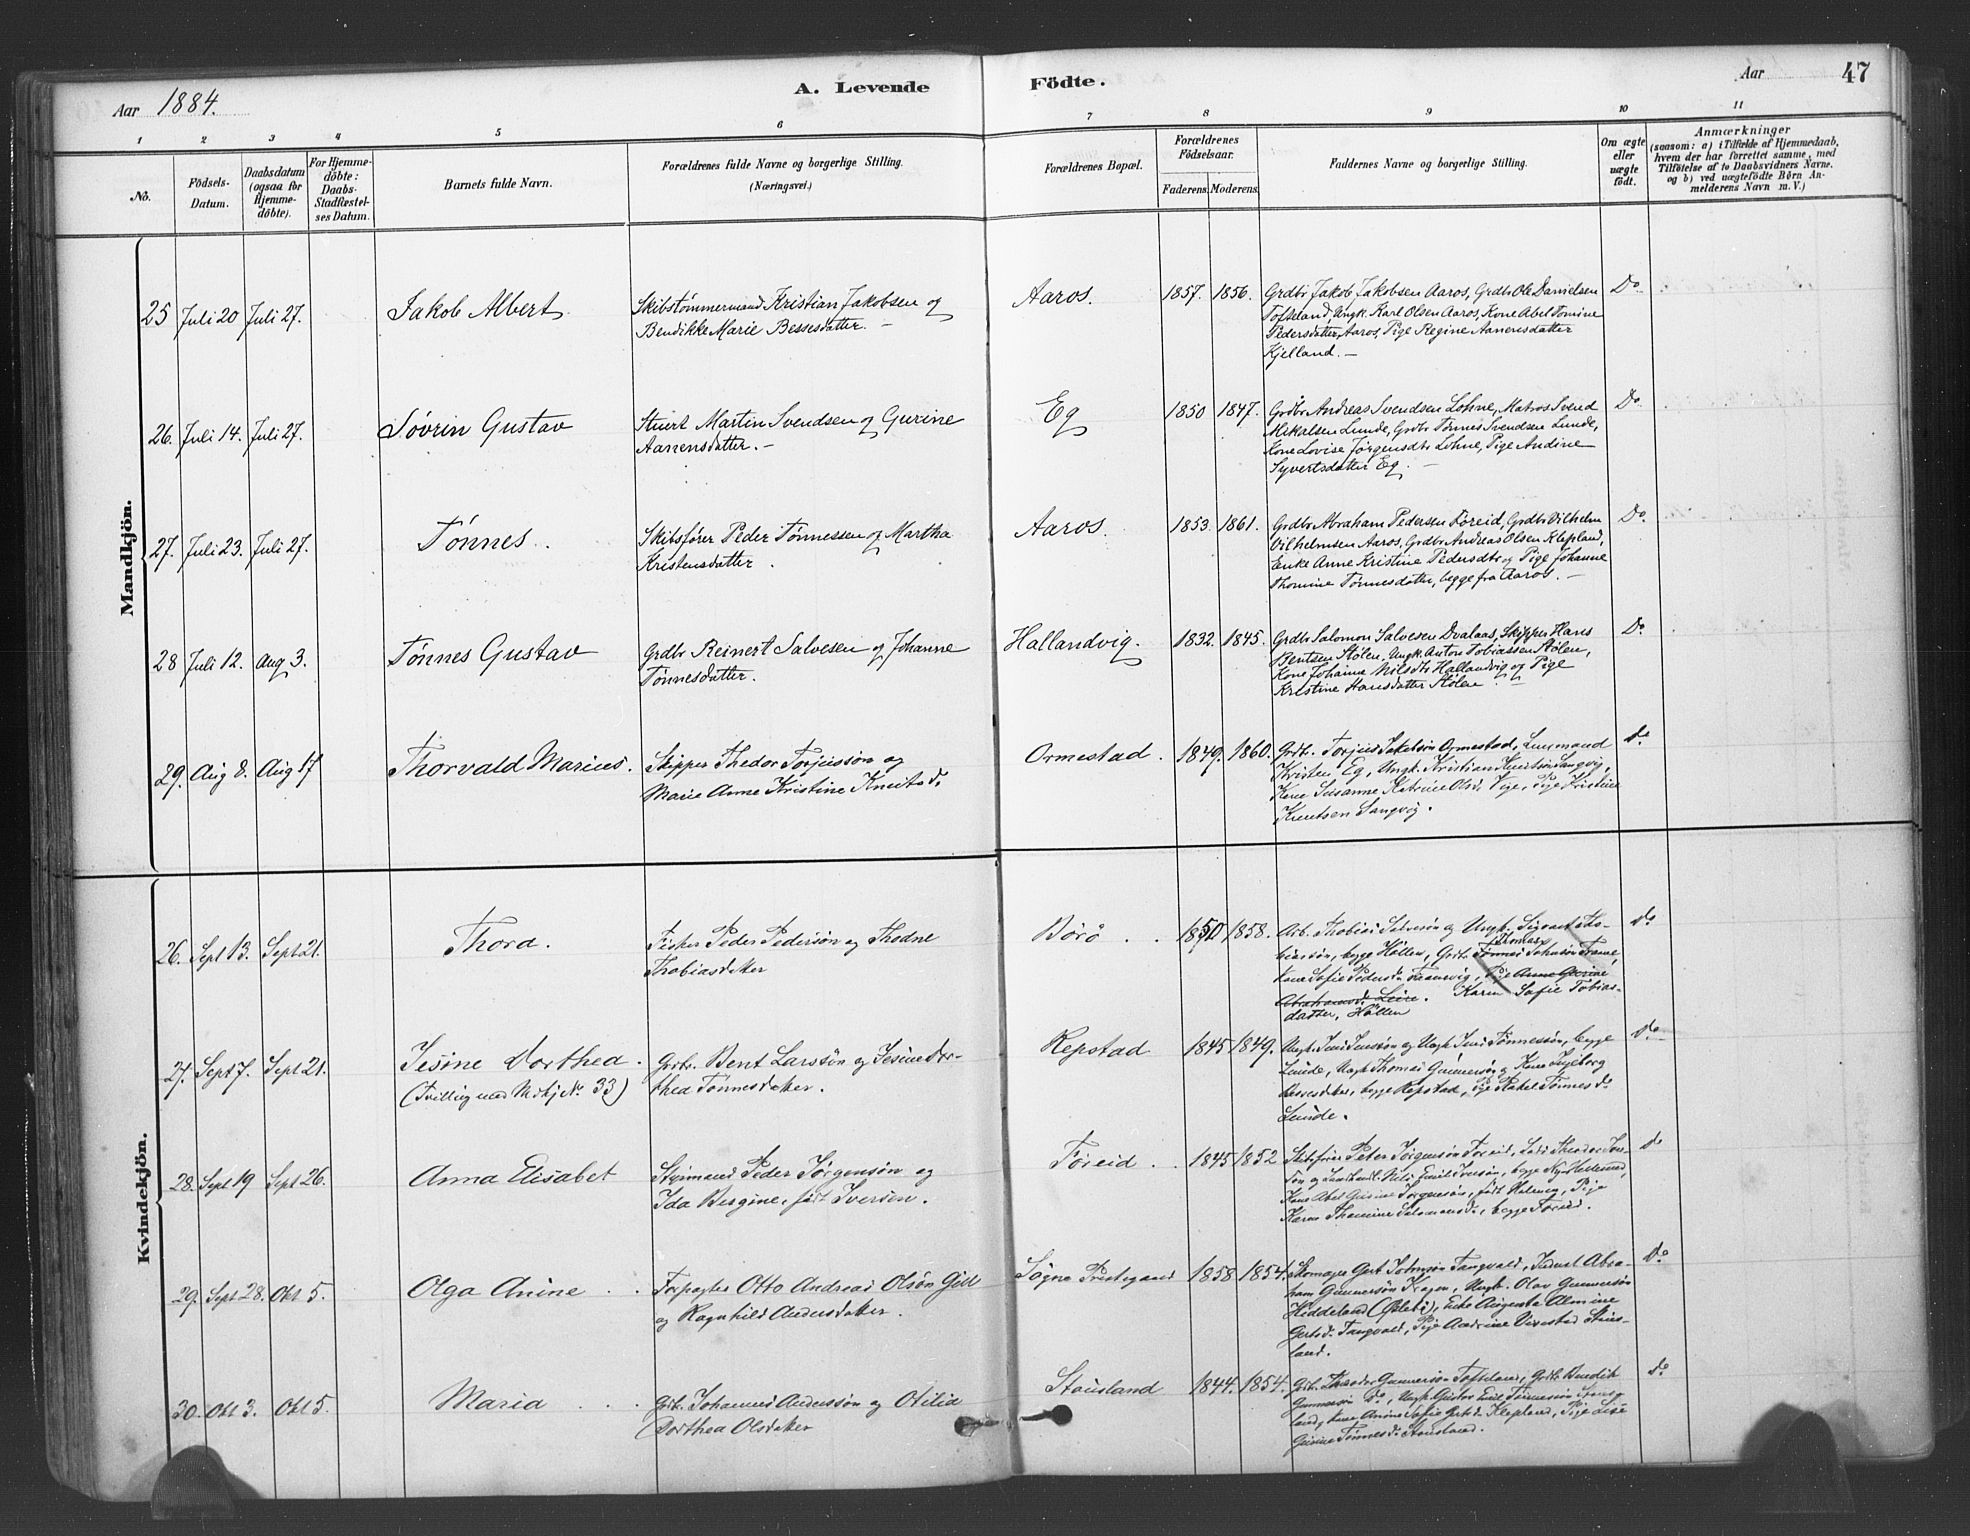 Aar 1884.
A. Levende Födte.
Aar 47
1 2 3 4 5 6 7 8 9 10 11
No.
Födsels-
Datum.
Daabsdatum
(ogsaa for
Hjemme-
döbte).
For Hjemme-
döbte:
Daabs-
Stadfæstel-
ses Datum.
Barnets fulde Navn.
Forældrenes fulde Navne og borgerlige Stilling.
(Næringsvei.)
Forældrenes Bopæl.
Forældrenes
Födselsaar.
Faderens. Moderens.
Faddernes Navne og borgerlige Stilling.
Om ægte
eller
uægte
födt.
Anmærkninger
(saasom: a) i Tilfælde af Hjemmedaab,
hvem der har forrettet samme, med
Tilföielse af to Daabsvidners Navne.
og b) ved uægtefödte Börn An-
melderens Navn m. V.)
Mandkjön.
25 Juli 20 Juli 27. Jakob Albert
Skibstømmermand Kristian Jakobsen og
Bendikke Marie Bessesdatter. —
Aaros. 1857. 1856.
Grdbr Jakob Jakobsen Aaros, Grdbr Ole Danielsen
Tofteland, Ungk. Karl Olsen Aaros, Kone Abel Tomine
Pedersdatter, Aaros, Pige Regine Aanensdatter
Kjelland. —
Do
26. Juli 14. Juli 27. Søvrin Gustav
Stuert Martin Svendsen og Gurine
Aanensdatter. —
Eg 1850 1847.
Grdbr Andreas Svendsen Lohne, Matros Svend
Mikalsen Lunde, Grdbr Tønnes Svendsen Lunde,
Kone Lovise Jørgensdtr Lohne, Pige Andine
Syvertsdatter Eg. —
Do
27. Juli 23. Juli 27. Tønnes.
Skibsfører Peder Tønnessen og Martha
Kristensdatter.
Aaros. 1853. 1861.
Grdbr Abraham Pedersen Føreid, Grdbr Vilhelm
Vilhelmsen Aaros, Grdbr Andreas Olsen Klepland,
Enke Anne Kristine Pedersdtr og Pige Johanne
Thomine Tønnesdatter, begge fra Aaros. —
Do
28 Juli 12. Aug 3. Tønnes Gustav
Grdbr Reinert Salvesen og Johanne
Tønnesdatter.
Hallandvig. 1832. 1845.
Grdbr Salomon Salvesen Dvalaas, Skipper Hans
Bentsen Stølen, Ungk. Anton Tobiassen Stølen,
Kone Johanne Nilsdtr Hallandvig og Pige
Kristine Hansdatter Stølen. —
Do
29. Aug 8. Aug 17 Thorvald Marius.
Skipper Thedor Torjussön og
Marie Anne Kristine Knutsd.
Ormestad. 1849. 1860.
Grdbr. Torjus Jakobsön Ormestad,
Kristen Eg, Ungk. Kristian Knutsön Sangvig,
Kone Susanne Katrine Olsd. Vige, Pige Kristine
Knutsen Sangvig.
do
Kvindekjön.
26. Sept 13. Sept 21. Thora.
Fisker Peder Pedersön og Thodne
Thobiasdatter
Börö 1850 1858.
Arb. Thobias Salvesön og Ungk. Sigvart Tho-
biassön, begge Höllen, Grdb. Thomas Tønnes Johnsön Trane,
Kone Sofie Pedersdr Tranevig, Pige Anne Gurine
Abrahamsdr Leire. Karen Sofie Tobias-
datter, Höllen
do
27. Sept 7. Sept 21. Jesine Dorthea.
(Tvilling med Mdkj No. 33)
Grbr. Bent Larssön og Jesine Dor-
thea Tønnesdatter.
Repstad 1845 1849.
Ungk. Jens Jenssön og Ungk Jens Tønnessön, begge
Lunde, Ungk Thomas Gunnersön og Kone Ingeborg
begge Repstad, Pige Rakel Tønnesdr
Lunde.
do
28. Sept 19 Sept 26. Anna Elisabet
Styrmand Peder Jörgensön og
Ida Bergine, født Iversen.
Føreid. 1845 1852
Skibsfører Peter Jörgensön Føreid, Lods Theodor
Nils Emil Iversön, begge Ny Hellesund,
Kone Abel Gurine Jörgensön, født Pige
Karen Thomine Salomonsdr, begge Føreid.
do
29. Sept 28. Okt 5. Olga Anine
Forpagter Otto Andreas Olsön Gill
og Ragnhild Andersdatter.
Søgne Prestegaard 1858 1854.
Skomager Gert Johnsön Tangvald, Abra-
ham Gunnersön Kragen, Ungk. Olav Gunnersön
Hiddeland (Øslebö), Enke Augusta Almine
Gertsdr Tangvald, Pige Andrine Virestad
land.
do
30. Okt 3. Okt 5. Maria
Grb. Johannes Anderssön og Otilia
Dorthea Olsdatter
Stousland 1844. 1854.
Grb. Theodor Gunnersön Tofteland, Grb. Bendik
Gunnersön Do, Ungk Gustav Emil Tønnessön
land, Kone Anine Sofie Gertsdr Klepland, Pige Lise
Gurine Tønnesdr Stousland.
do